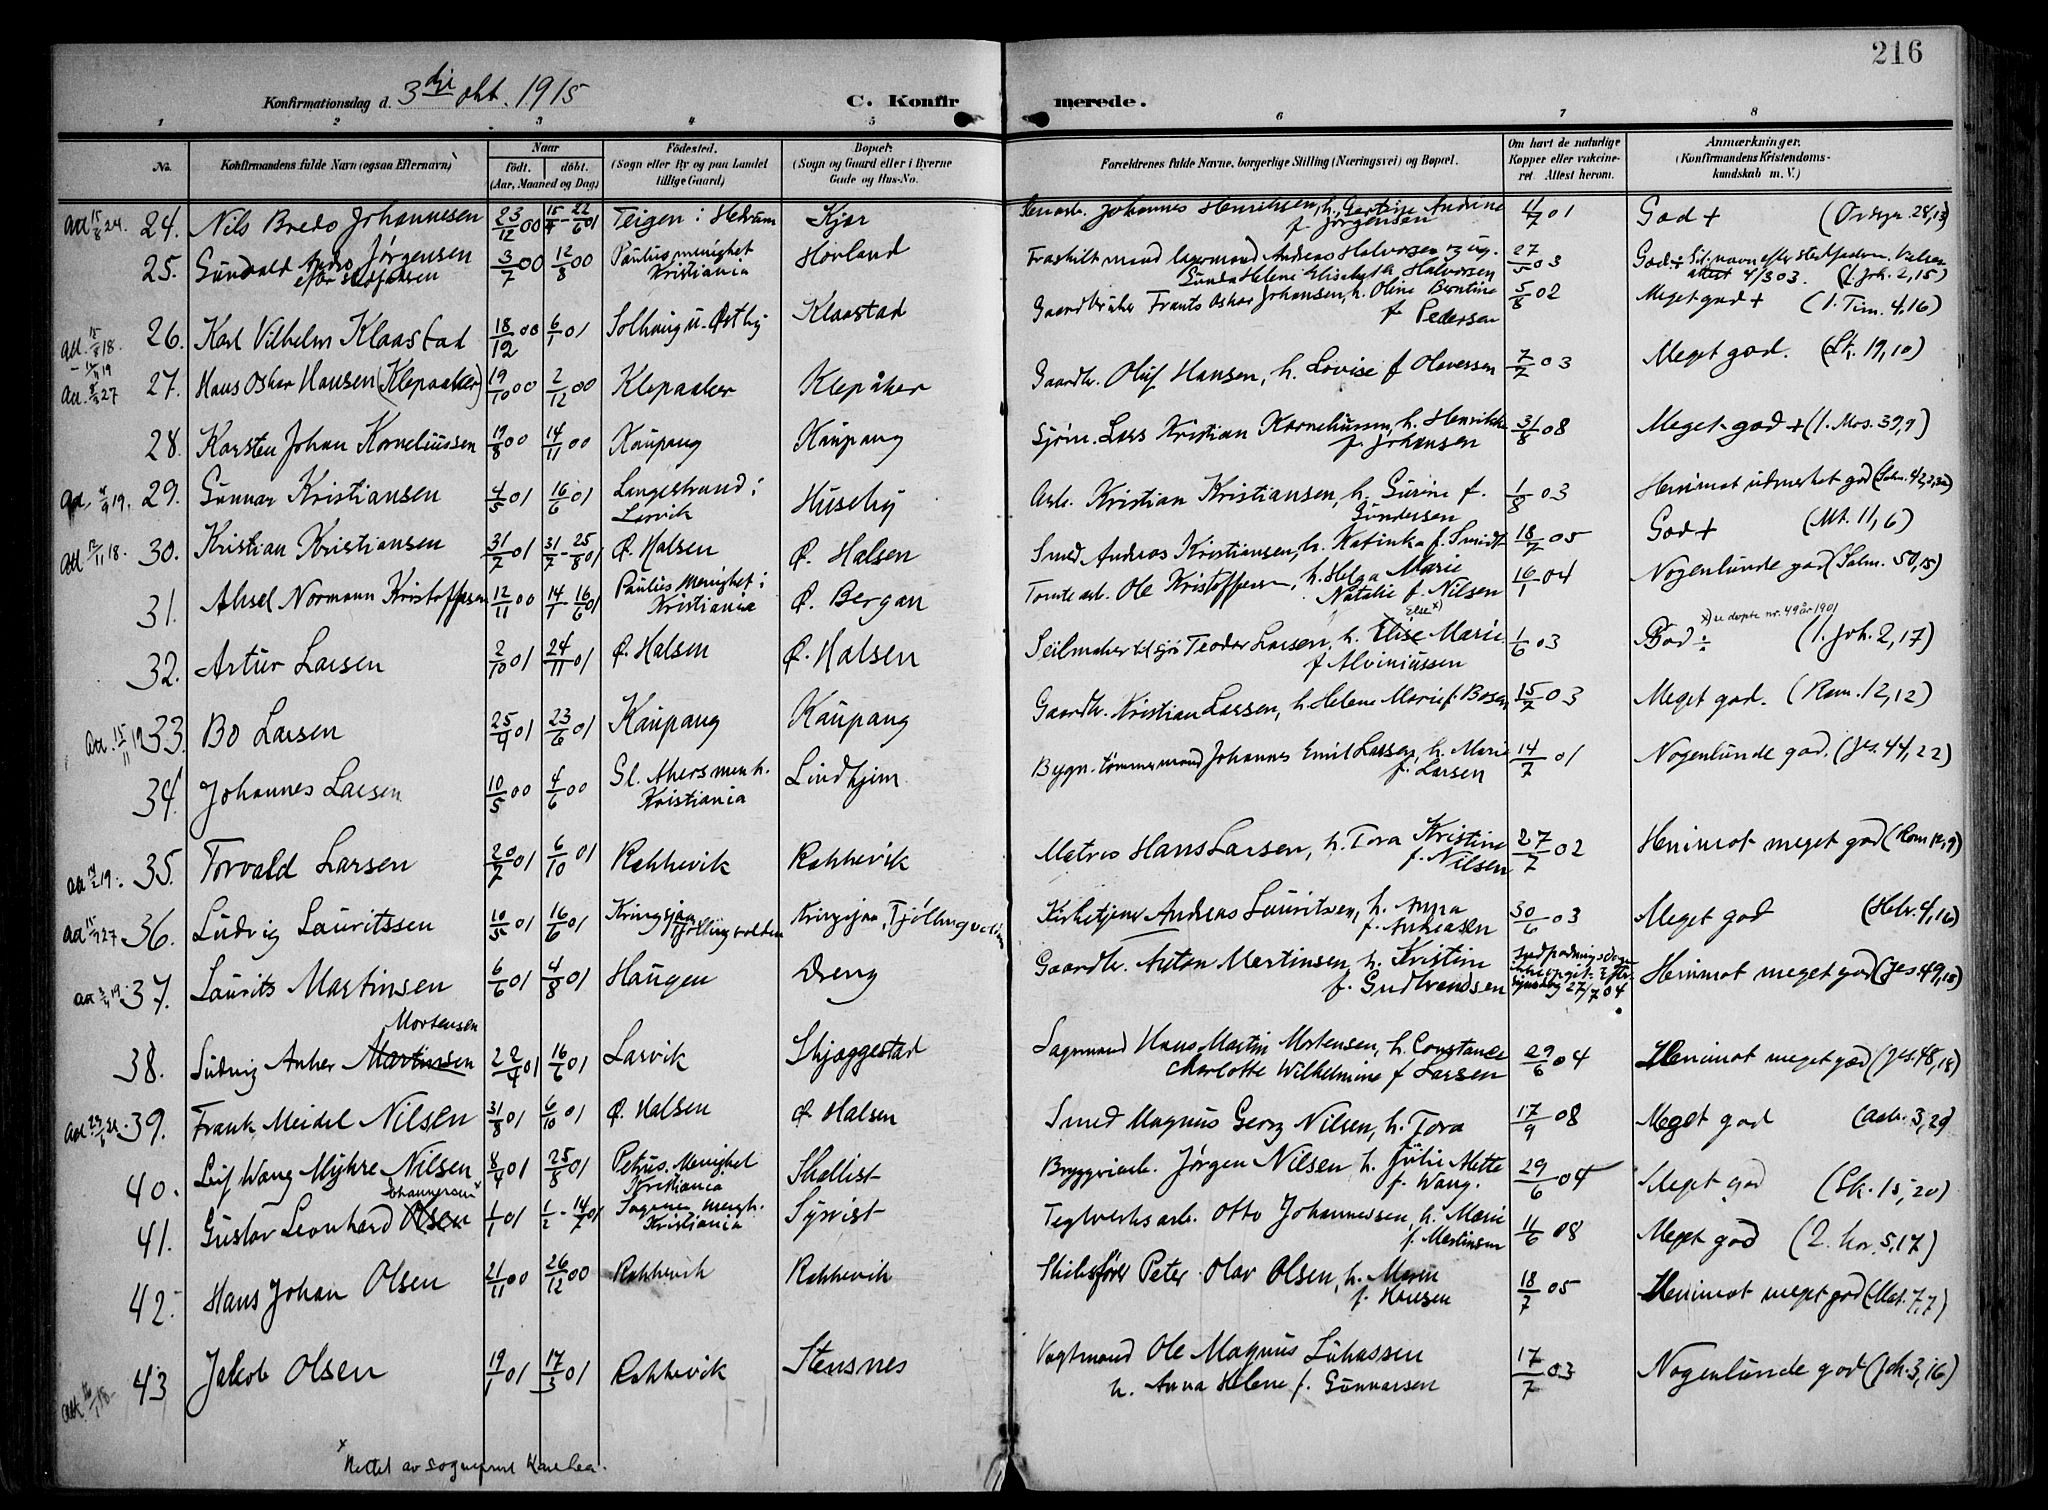 216
Konfirmationsdag d. 3die okt. 1915 C. Konfirmerede.
1 2 3 4 5 6 7 8
No. Konfirmandens fulde Navn (ogsaa Efternavn) Naar født. døbt. (Aar, Maaned og Dag) Fødested. (Sogn eller By og paa Landet tillige Gaard) Bopæl: (Sogn og Gaard eller i Byerne Gade og Hus-No. Forældrenes fulde Navne, borgerlige Stilling (Næringsvei) og Bopæl. Om havt de naturlige Kopper eller vakcineret. Attest herom. Anmærkninger. (Konfirmandens Kristendomskundskab m. V.)
Att 15/8 24. 24. Nils Bredo Johannesen 23/12 00 15/4 - 22/6 01 Teigen i Hedrum Kjær Johannes Henriksen, h. Gertine Andrine f. Jørgensen 11/7 01 God +
25. Gundald Jørgensen 3/7 00 12/8 00 Paulus menighet Kristiania Hovland Fraskilt mand lagermand Andreas Halvorsen og ug. Gunda Helene Elisabeth Halvorsen 27/5 03 God ÷ (1. Joh. 2, 15)
26. Karl Vilhelm Klaastad 18/12 00 6/1 01 Solhaug u. Østby Klaastad Gaardbruker Frants Oskar Johansen, h. Oline Berntine f. Pedersen 5/8 02 Meget god + (1. Tim. 4, 16)
Att. 15/8 18.
27. Hans Oskar Hansen (Klepaaker) 19/10 00 2/12 00 Klepaaker Klepåker Gaardbr. Oluf Hansen, h. Lovise f. Olavessen 7/7 03 Meget god. (Lk. 19, 10)
28. Karsten Johan Korneliussen 19/8 00 14/11 00 Kaupang Kaupang Sjøm. Lars Kristian Korneliussen, h. Henrikke f. Johansen 31/8 08 Meget god + (1. Mos. 39, 9)
29. Gunnar Kristiansen 4/5 01 16/6 01 Langestrand i Larvik Huseby Arb. Kristian Kristiansen, h. Gurine f. Gundersen 1/8 03 Henimot udmerket god
Att 12/11 18. 30. Kristian Kristiansen 31/7 01 31/7 - 25/8 01 Ø. Halsen Ø. Halsen Smed Andreas Kristiansen, h. Katinka f. Smidt 18/7 05 God + (Mt. 11, 6)
31. Aksel Normann Kristoffersen 12/11 00 14/1 - 16/6 01 Paulus Menighet i Kristiania Ø. Bergan Tomtearb. Ole Kristoffersen, h. Helga Marie Natalie f. Nilsen 16/1 04 Nogenlunde god (Salm. 50, 15)
32. Artur Larsen 2/10 01 24/11 01 Ø. Halsen Ø. Halsen Seilmaker til sjøs Teodor Larsen, h. Elise Else x) Marie f. Alviniussen 1/6 03 God ÷ (1. Joh. 2, 17)
x) se døpte nr. 49 år 1901
33. Bo Larsen 25/4 01 23/6 01 Kaupang Kaupang Gaardbr. Kristian Larsen, h. Helene Marie f. Bosen 15/7 03 Meget god. (Rom. 12, 12)
34. Johannes Larsen 10/5 00 4/6 00 Gl. Akers menh. Kristiania Lindhjem Bygn. tømmermand Johannes Emil Larsen, h. Marie f. Larsen 14/7 01 Nogenlunde god. (Jes. 44, 22)
35. Torvald Larsen 20/7 01 6/10 01 Rakkevik Rakkevik Matros Hans Larsen, h. Tora Kristine f. Nilsen 27/7 02 Henimot meget god (Rom 12, 9)
36. Ludvig Lauritssen 10/5 01 16/6 01 Kringsjaa Tjøllingvolden Kringsjaa, Tjøllingvolden Kirketjener Andreas Lauritsen, h. Anna f. Andreasen 30/6 03 Meget god (Hebr. 4, 16)
37. Laurits Martinsen 6/6 01 4/8 01 Haugen Dreng Gaardbr. Anton Martinsen, h. Kristine f. Gudbrandsen 27/7 04 Henimot meget god (Jes. 49, 15)
38. Ludvig Anker Martinsen Mortensen 22/4 01 16/6 01 Larvik Skjæggestad Sagmand Hans Martin Mortensen, h. Constance Charlotte Wilhelmine f. Larsen 29/6 04 Henimot meget god (Jes. 48, 18)
39. Frank Meidel Nilsen 31/8 01 6/10 01 Ø. Halsen Ø. Halsen Smed Magnus Georg Nilsen, h. Tora 17/9 08 Meget god
40. Leif Wang Myhre Nilsen 8/4 01 25/8 01 Petrus. Menighet Kristiania Skallist Bryggeriarb. Jørgen Nilsen h. Julie Mette f. Wang. 29/6 04 Meget god (Lk. 15, 20)
41. Gustav Leonhard Olsen Johannessen x 1/1 01 1/2 - 14/7 01 Sagene menigh. Kristiania Syvist Teglverksarb. Otto Johannessen, h. Marie f. Martinsen 11/6 08 Meget god (2. Kor. 5, 17)
42. Hans Johan Olsen 21/11 00 26/12 00 Rakkevik Rakkevik Skibsfører Peter Olav Olsen, h. Maren f. Hansen 18/7 05 Henimot meget god (Mat. 7, 7)
43 Jakob Olsen 19/1 01 17/3 01 Rakkevik Stensnes Vagtmand Ole Magnus Lukassen h. Anna Helene f. Gunnarsen 17/7 03 Nogenlunde god (Joh. 3, 16)
x Rettet av sogneprest